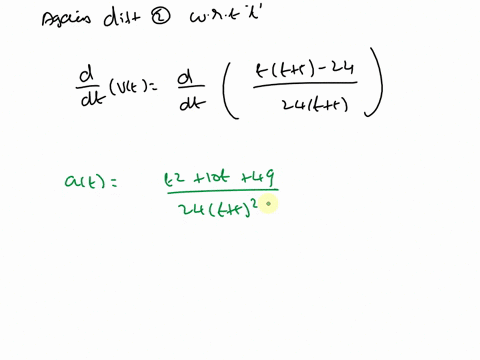 Again diff ② w.r.t 't'
d/dt (V(t) = d/dt ( t(t+5) - 24 / 24(t+5) )
a(t) = t2 + 10t + 49 / 24(t+5)²